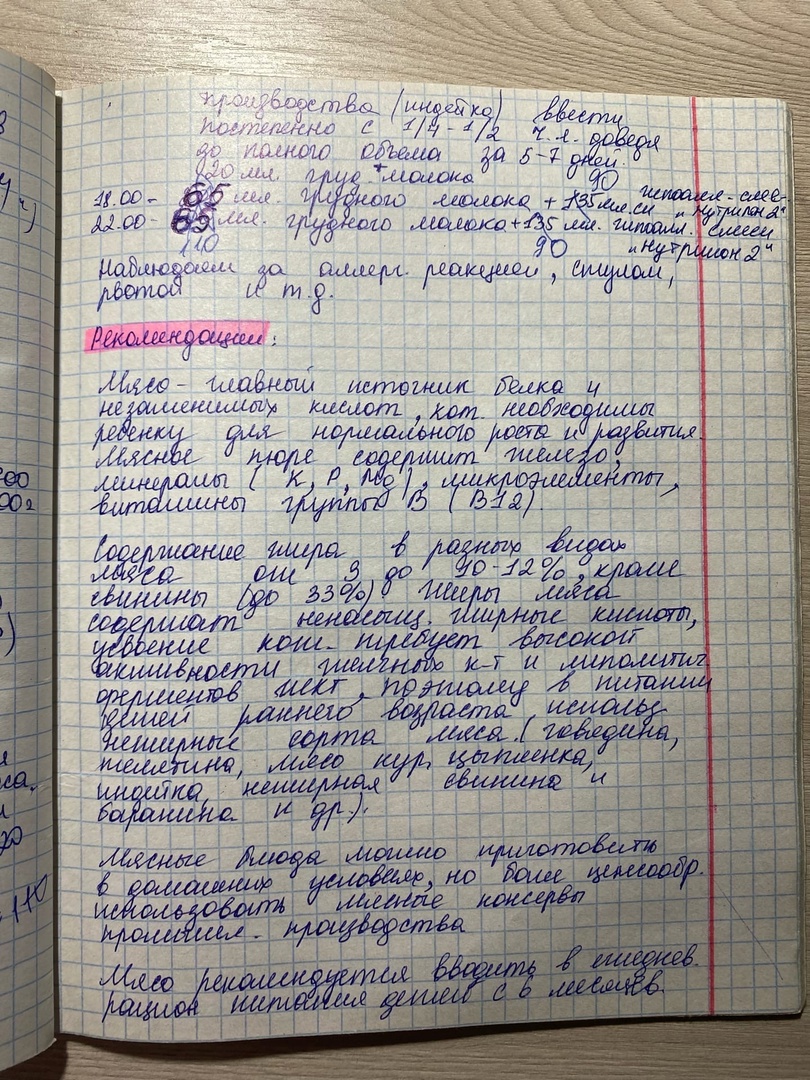 производства (индейка) ввести
постепенно с 1/4-1/2 ч.л. доведя
до полного объема за 5-7 дней.
120мл. груд. молока 90
18.00- 65 мл. грудного молока + 135мл.см гипоалл. смес-
"Нутрилон 2"
22.00- 65 мл. грудного молока+135 мл. гипоалл. смеси
110 90 "Нутрилон 2"
Наблюдаем за аллерг. реакцией, стулом,
рвотой и т.д.
Рекомендации:
Мясо - главный источник белка и
незаменимых кислот, кот. необходимы
ребенку для нормального роста и развития.
Мясное пюре содержит железо,
минералы (K, P, Mg), микроэлементы,
витамины группы В (В12).
Содержание жира в разных видах
мяса от 3 до 10-12%, кроме
свинины (до 33%) Жиры мяса
содержат ненасыщ. жирные кислоты,
усвоение кот. требует высокой
активности желчных к-т и липолитич
ферментов ЖКТ, поэтому в питании
детей раннего возраста использ.
нежирные сорта мяса (говядина,
телятина, мясо кур, цыпленка,
индейка, нежирная свинина и
баранина и др.).
Мясные блюда можно приготовить
в домашних условиях, но более целесообр.
использовать мясные консервы
промышл. производства
Мясо рекомендуется вводить в ежеднев.
рацион питания детей с 6 месяцев.
600
002
110